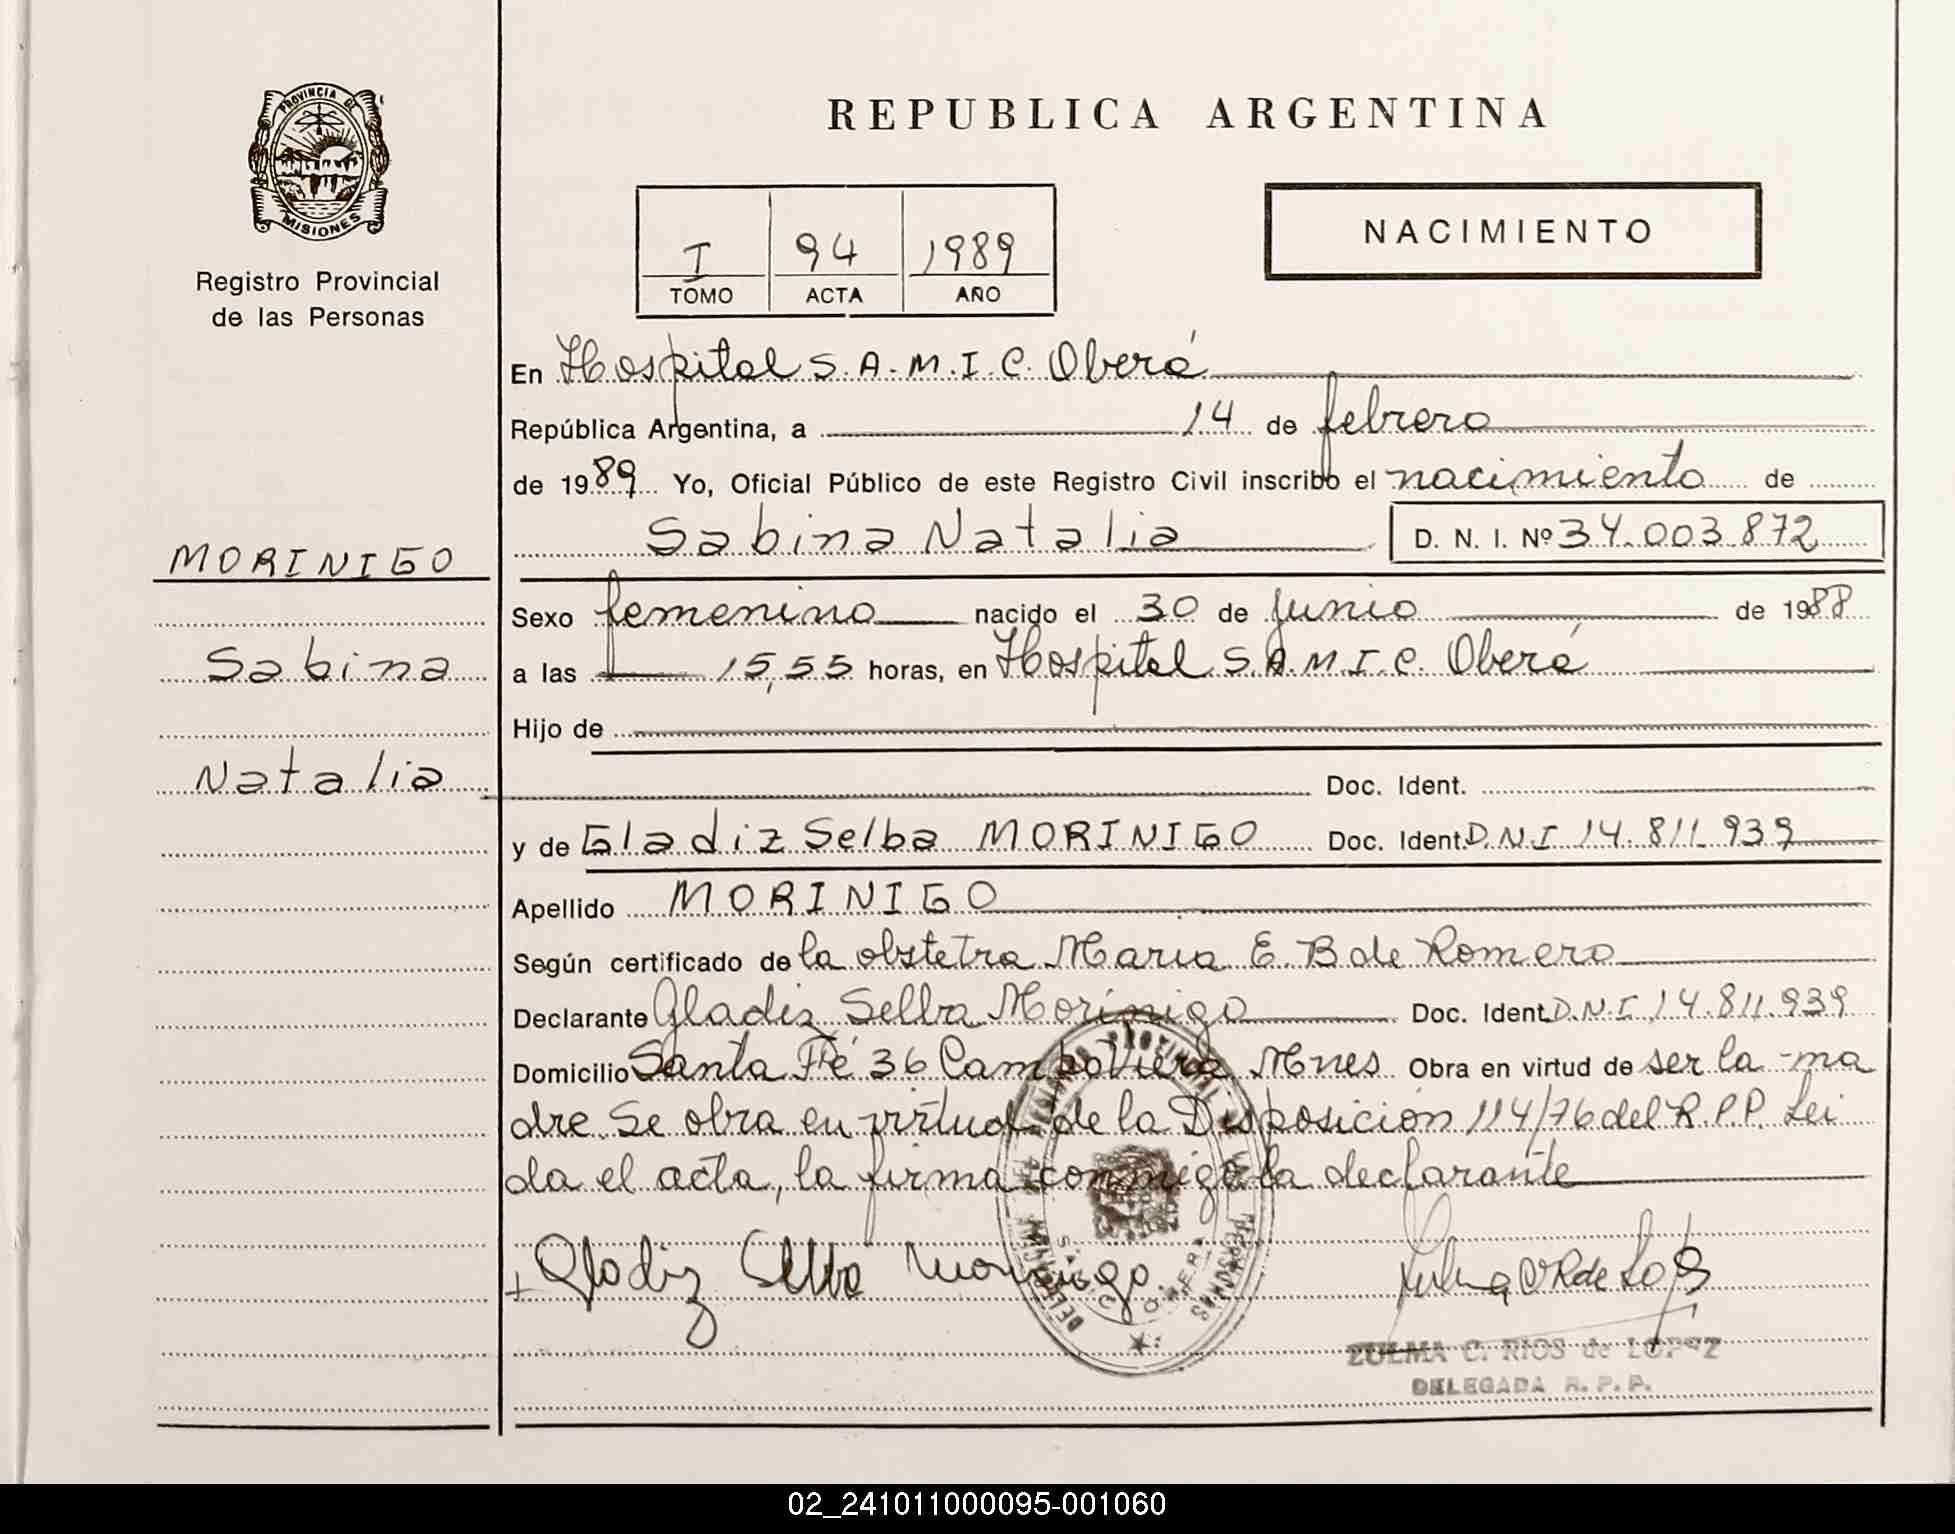 PROVINCIA DE
MISIONES
Registro Provincial
de las Personas
MORINIGO
Sabina
Natalia
REPUBLICA ARGENTINA
I 94 1989
TOMO ACTA AÑO
NACIMIENTO
En Hospital S.A.M.I.C. Oberá
República Argentina, a 14 de febrero
de 1989 Yo, Oficial Público de este Registro Civil inscribo el nacimiento de
Sabina Natalia D. N. I. Nº 34.003.872
Sexo femenino nacido el 30 de junio de 1988
a las 15,55 horas, en Hospital S.A.M.I.C. Oberá
Hijo de
Doc. Ident.
y de Gladiz Selba MORINIGO Doc. Ident. D.N.I 14.811.939
Apellido MORINIGO
Según certificado de la obstetra Maria E. B de Romero
Declarante Gladiz Selba Morinigo Doc. Ident. D.N.I 14.811.939
Domicilio Santa Fé 36 Campo Viera Mnes Obra en virtud de ser la ma
dre. Se obra en virtud de la Disposición 114/76 del R.P.P. Lei
da el acta, la firma conmigo la declarante
Gladiz Selba Morinigo
ZULMA C. RIOS de LOPEZ
DELEGADA R. P. P.
02_241011000095-001060